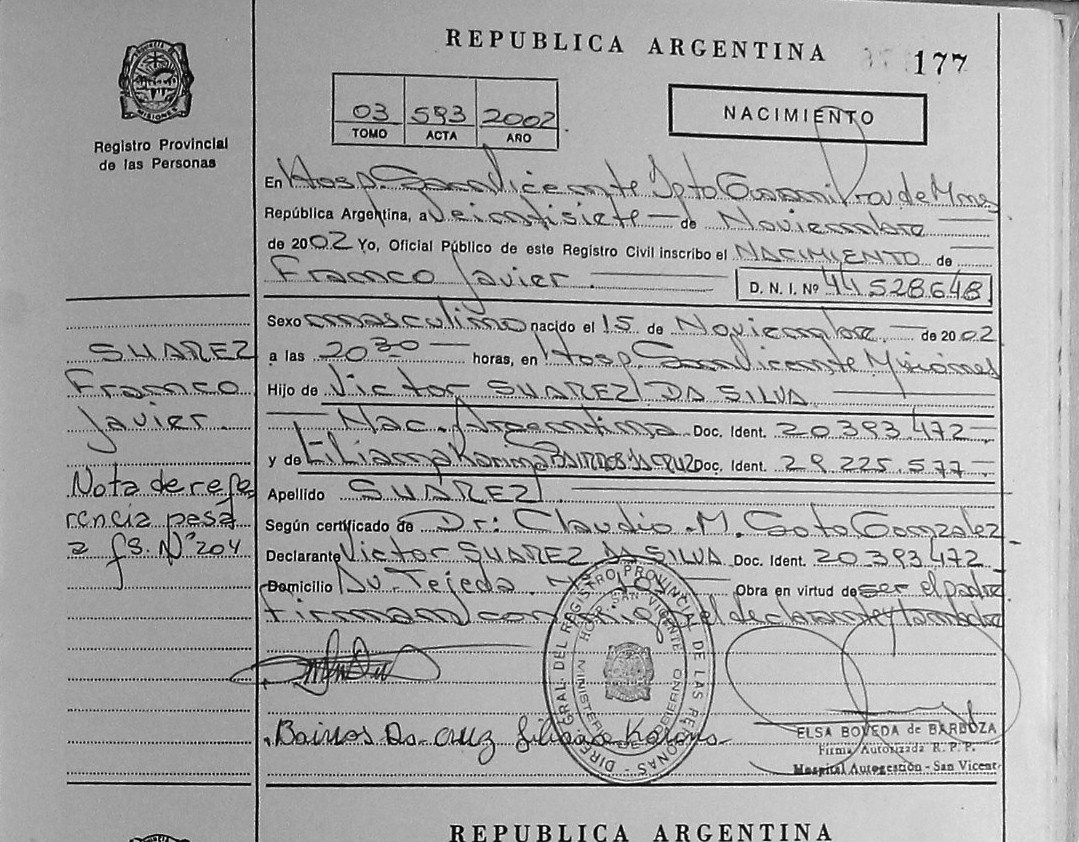 REPUBLICA ARGENTINA
177
PROVINCIA DE MISIONES
Registro Provincial
de las Personas
03 593 2002
TOMO ACTA AÑO
NACIMIENTO
En Hosp. San Vicente Dpto Guaraní Prov de Mnes
República Argentina, a Veintisiete de Noviembre
de 2002 Yo, Oficial Público de este Registro Civil inscribo el NACIMIENTO de
Franco Javier.
D. N. I. Nº 44.528.648
Sexo masculino nacido el 15 de Noviembre de 2002
a las 20 30 horas, en Hosp. San Vicente Misiones
Hijo de Victor SUAREZ DA SILVA
Nac. Argentina Doc. Ident. 20.393.472
y de Liliana Karina Doc. Ident. 29.225.577
Apellido SUAREZ
Según certificado de Dr: Claudio M. Soto Gonzalez
Declarante Victor SUAREZ DA SILVA Doc. Ident. 20.393.472
Domicilio Av. Tejeda Obra en virtud de ser el padre
Firman conmigo el declarante y la madre
SUAREZ
Franco
Javier.
Nota de refe
rencia pasa
a fs. Nº 204
Bairros Da cruz Liliana Karina
ELSA BOVEDA de BARBOZA
Firma Autorizada R. P. P.
Hospital Autogestión - San Vicent
REPUBLICA ARGENTINA